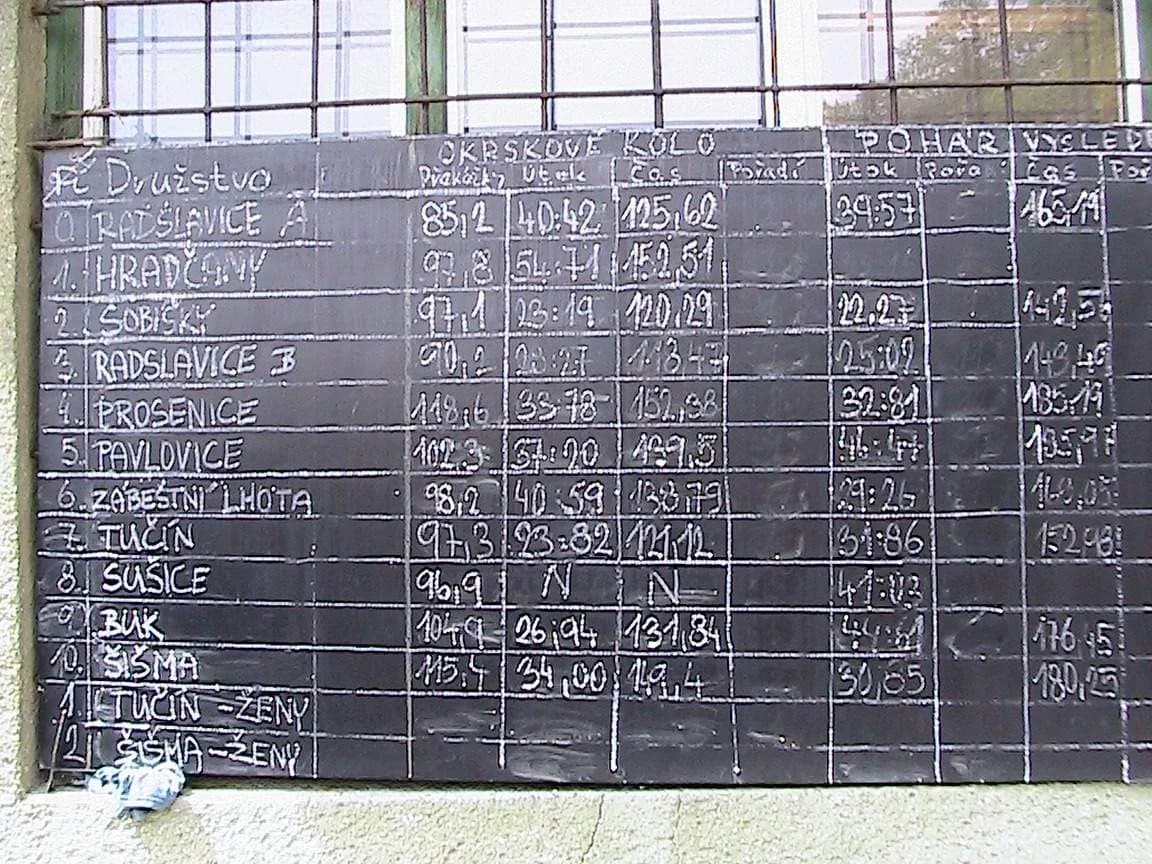 OKRSKOVÉ KOLO POHÁR VÝSLED
Př Družstvo Překážky Útok Čas Pořadí Útok Pořa Čas Poř
0. RADSLAVICE A 85,2 40:42 125,62 39:57 165,19
1. HRADČANY 97,8 54:71 152,51
2. SOBIŠKY 97,1 23:19 120,29 22,27 142,56
3. RADSLAVICE B 90,2 23:27 25:02
4. PROSENICE 118,6 33:78 152,38 32:81 185,19
5. PAVLOVICE 102,3 37:20 139,5 46:47
6. ZÁBEŠTNÍ LHOTA 98,2 40:59 138,79 29:26 168,05
7. TUČÍN 97,3 23:82 121,12 31:86 152,98
8. SUŠICE 96,9 N N 41:03
9. BUK 104,9 26,94 131,84 176,15
10. ŠIŠMA 115,4 34,00 149,4 30,85 180,25
1. TUČÍN -ŽENY
2 ŠIŠMA-ŽENY